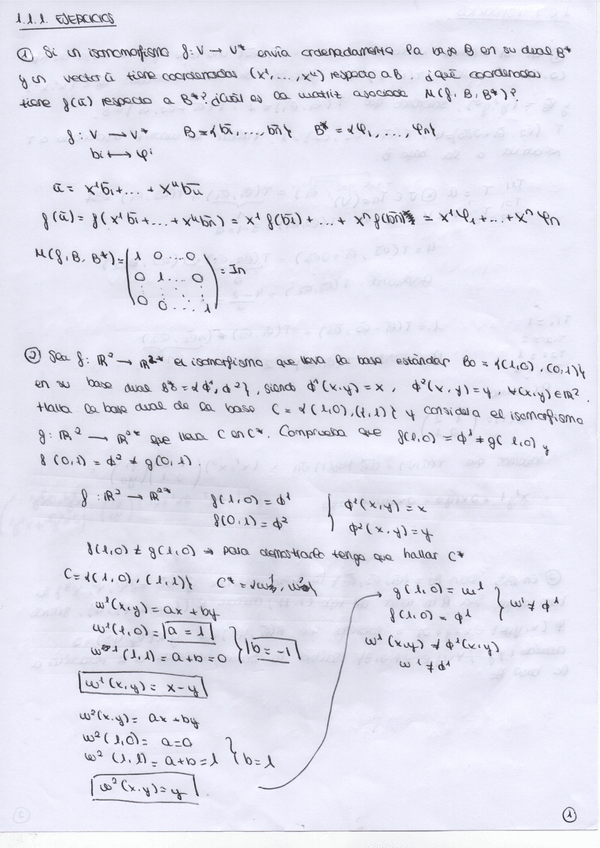 1.1.1. EJERCICIOS
① Si un isomorfismo f: V → V* envía ordenadamente la base B en su dual B*
y un vector ū tiene coordenadas (x¹, ..., xⁿ) respecto a B. ¿Qué coordenadas
tiene f(ū) respecto a B*? ¿Cuál es la matriz asociada M(f, B, B*)?
f: V → V* B = {b̄1, ..., b̄n} B* = {φ1, ..., φn}
bi ↦ φi
ū = x¹b̄1 + ... + xⁿb̄n
f(ū) = f(x¹b̄1 + ... + xⁿb̄n) = x¹ f(b̄1) + ... + xⁿ f(b̄n) = x¹φ1 + ... + xⁿφn
M(f, B, B*) = (1 0 ... 0
0 1 ... 0
. . . .
0 0 ... 1) = In
② Sea f: ℝ² → ℝ²* el isomorfismo que lleva la base estándar B0 = {(1,0), (0,1)}
en su base dual = {ϕ¹, ϕ²}, siendo ϕ¹(x,y) = x, ϕ²(x,y) = y, ∀(x,y) ∈ ℝ².
Halla la base dual de la base C = {(1,0), (1,1)} y considera el isomorfismo
g: ℝ² → ℝ²* que lleva C en C*. Comprueba que f(1,0) = ϕ¹ ≠ g(1,0) y
f(0,1) = ϕ² ≠ g(0,1).
f: ℝ² → ℝ²* f(1,0) = ϕ¹ ϕ¹(x,y) = x
f(0,1) = ϕ² ϕ²(x,y) = y
f(1,0) ≠ g(1,0) → para demostrarlo tengo que hallar C*
C = {(1,0), (1,1)} C* = {ω¹, ω²} g(1,0) = ω¹
ω¹(x,y) = ax + by f(1,0) = ϕ¹ } ω¹ ≠ ϕ¹
ω¹(1,0) = a = 1 ω¹(x,y) ≠ ϕ¹(x,y)
ω¹(1,1) = a+b = 0 } b = -1 ω¹ ≠ ϕ¹
ω¹(x,y) = x - y
ω²(x,y) = ax + by
ω²(1,0) = a = 0
ω²(1,1) = a+b = 1 } b = 1
ω²(x,y) = y
①